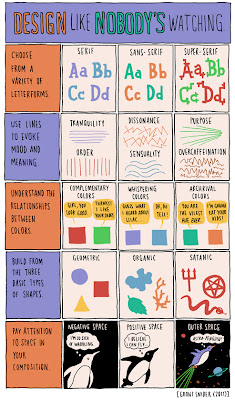 DESIGN LIKE NOBODY'S WATCHING.
CHOOSE
FROM A
VARIETY OF
LETTERFORMS.
SERIF
Aa Bb
Cc Dd
SANS-SERIF
Aa Bb
Cc Dd
SUPER-SERIF
Aa Bb
Cc Dd
USE LINES
TO EVOKE
MOOD AND
MEANING.
TRANQUILITY
ORDER
DISSONANCE
SENSUALITY
PURPOSE
OVERCAFFEINATION
UNDERSTAND THE
RELATIONSHIPS
BETWEEN
COLORS.
COMPLEMENTARY
COLORS
GIRL, YOU
LOOK GOOD.
THANKS! I
LOVE YOUR
WHISPERING
COLORS
GUESS WHAT
I HEARD ABOUT
LILAC.
OH, DO
TELL!
ARCHRIVAL
COLORS
YOU ARE
THE VILEST
HUE EVER.
I'M GONNA
EAT YOUR
KIDS!
BUILD FROM
THE THREE
BASIC TYPES
OF SHAPES.
GEOMETRIC
ORGANIC
SATANIC
PAY ATTENTION
TO SPACE IN
YOUR
COMPOSITION.
NEGATIVE SPACE
I'M SO SICK
OF WADDLING.
POSITIVE SPACE
I BELIEVE
I CAN FLY.
OUTER SPACE
[GRANT SNIDER (2017)]